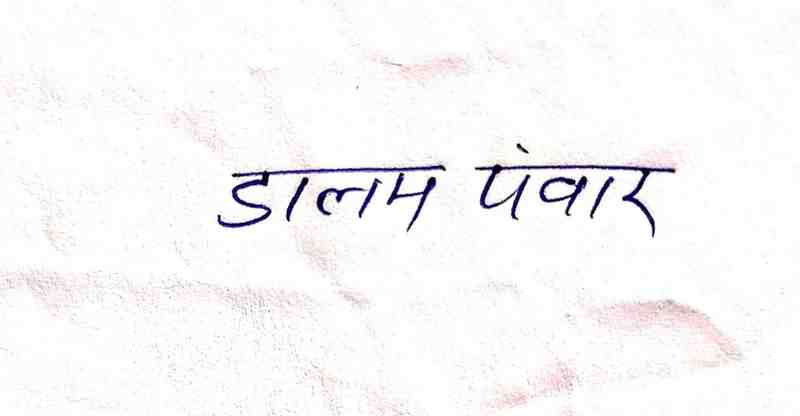 डालम पंवार